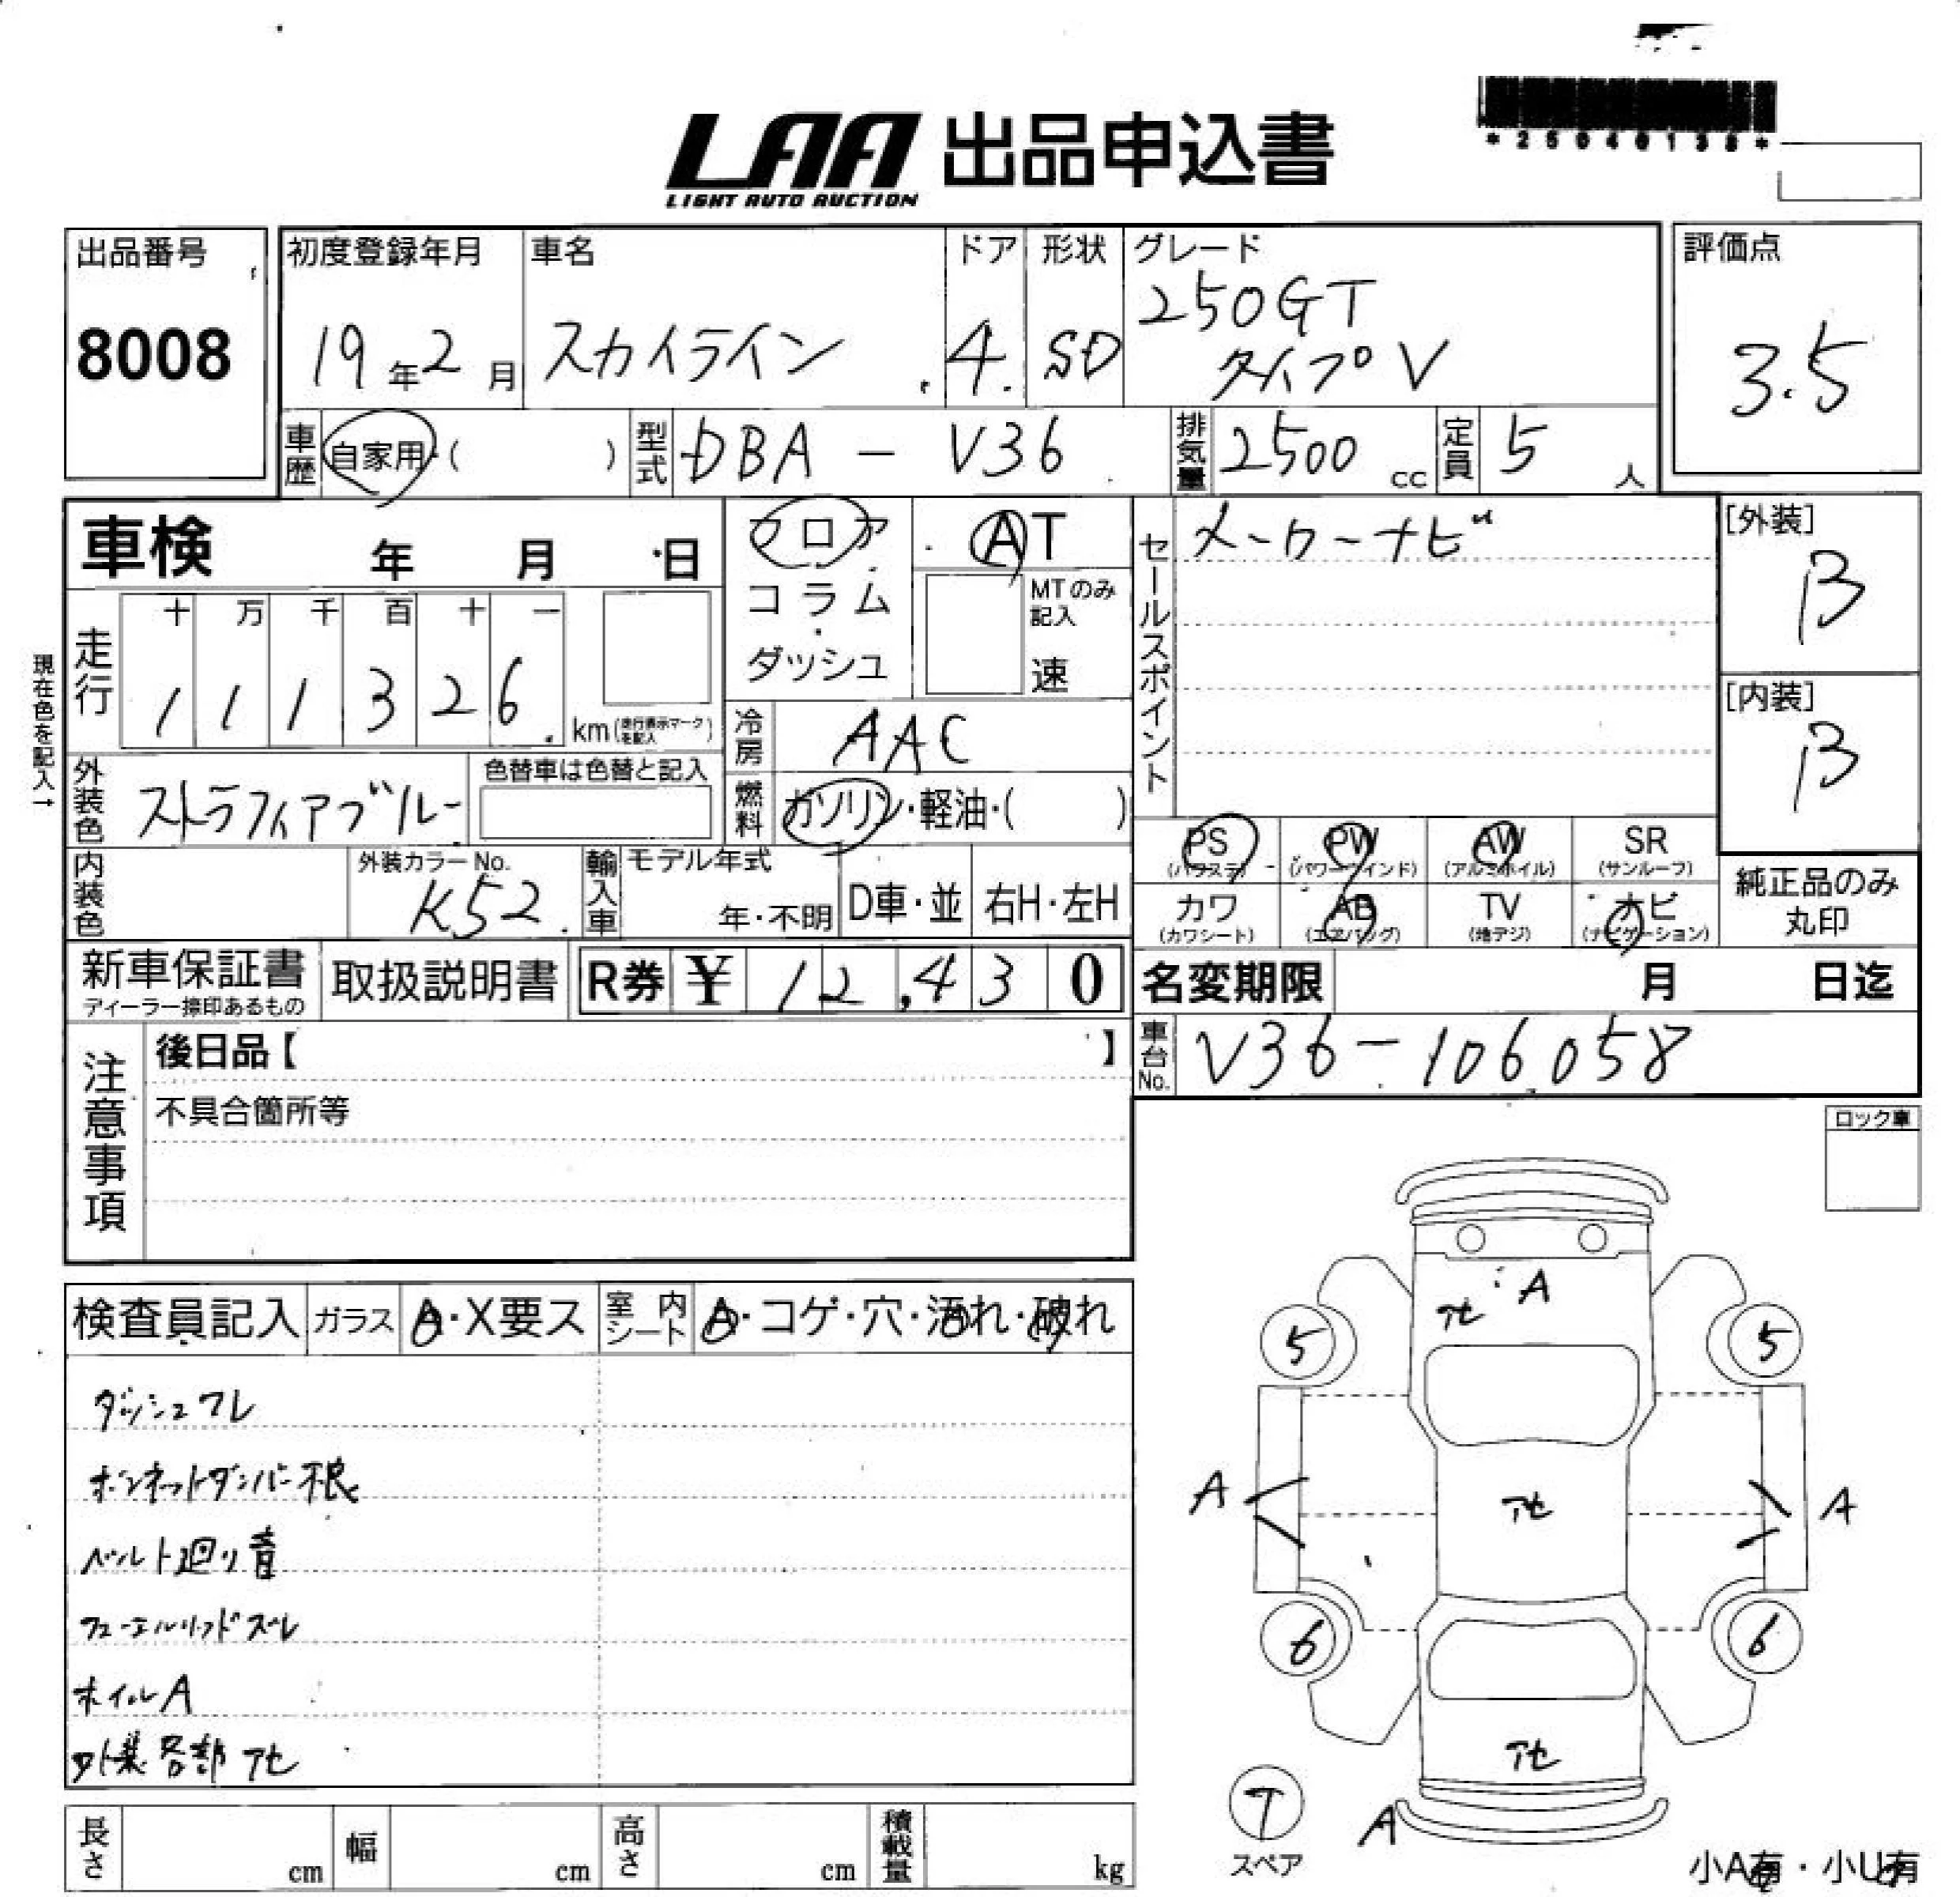 *25040138*
LAA 出品申込書
LIGHT AUTO AUCTION
出品番号
8008
初度登録年月
19年2月
車名
スカイライン
ドア
4
形状
SD
グレード
250GT
タイプV
評価点
3.5
車歴 自家用・( )
型式 DBA - V36
排気量 2500 cc
定員 5 人
車検 年 月 日
フロア
コラム
ダッシュ
AT
MTのみ
記入
速
セールスポイント
メーカーナビ
[外装]
B
[内装]
B
走行
十 万 千 百 十 一
1 1 1 3 2 6
km(走行表示マークを記入)
現在色を記入→
冷房 AAC
燃料 ガソリン・軽油・( )
外装色 ストラフィアブルー
色替車は色替と記入
内装色
外装カラーNo.
K52
輸入車
モデル年式
年・不明
D車・並
右H・左H
PS
(パワステ)
PW
(パワーウインド)
AW
(アルミホイル)
SR
(サンルーフ)
カワ
(カワシート)
AB
(エアバッグ)
TV
(地デジ)
ナビ
(ナビゲーション)
純正品のみ
丸印
新車保証書
ディーラー捺印あるもの
取扱説明書
R券 ¥ 12,430
名変期限 月 日迄
車台No. V36-106058
注意事項
後日品【 】
不具合箇所等
ロック車
検査員記入
ガラス A・X要ス
室内シート A・コゲ・穴・汚れ・破れ
ダッシュワレ
ボンネットダンパー不良
ベルト廻り音
フューエルリッドズレ
ホイルA
外装各部アセ
A
アセ
5
5
A
アセ
A
6
6
アセ
T
スペア
A
小A有・小U有
長さ cm
幅 cm
高さ cm
積載量 kg